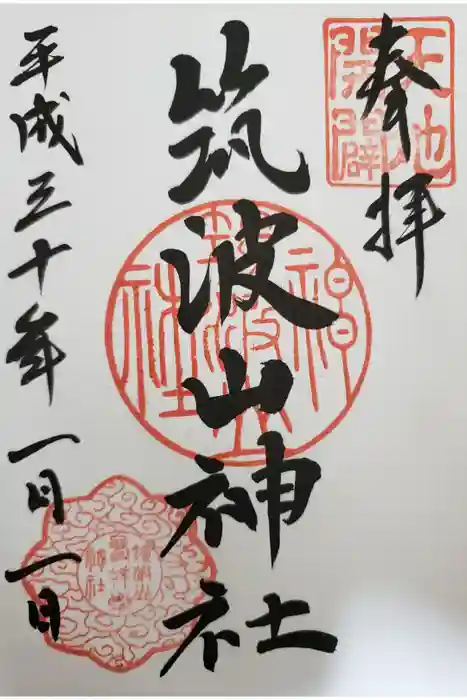 奉拝
天地開闢
筑波山神社
筑波山神社
平成三十年一月一日